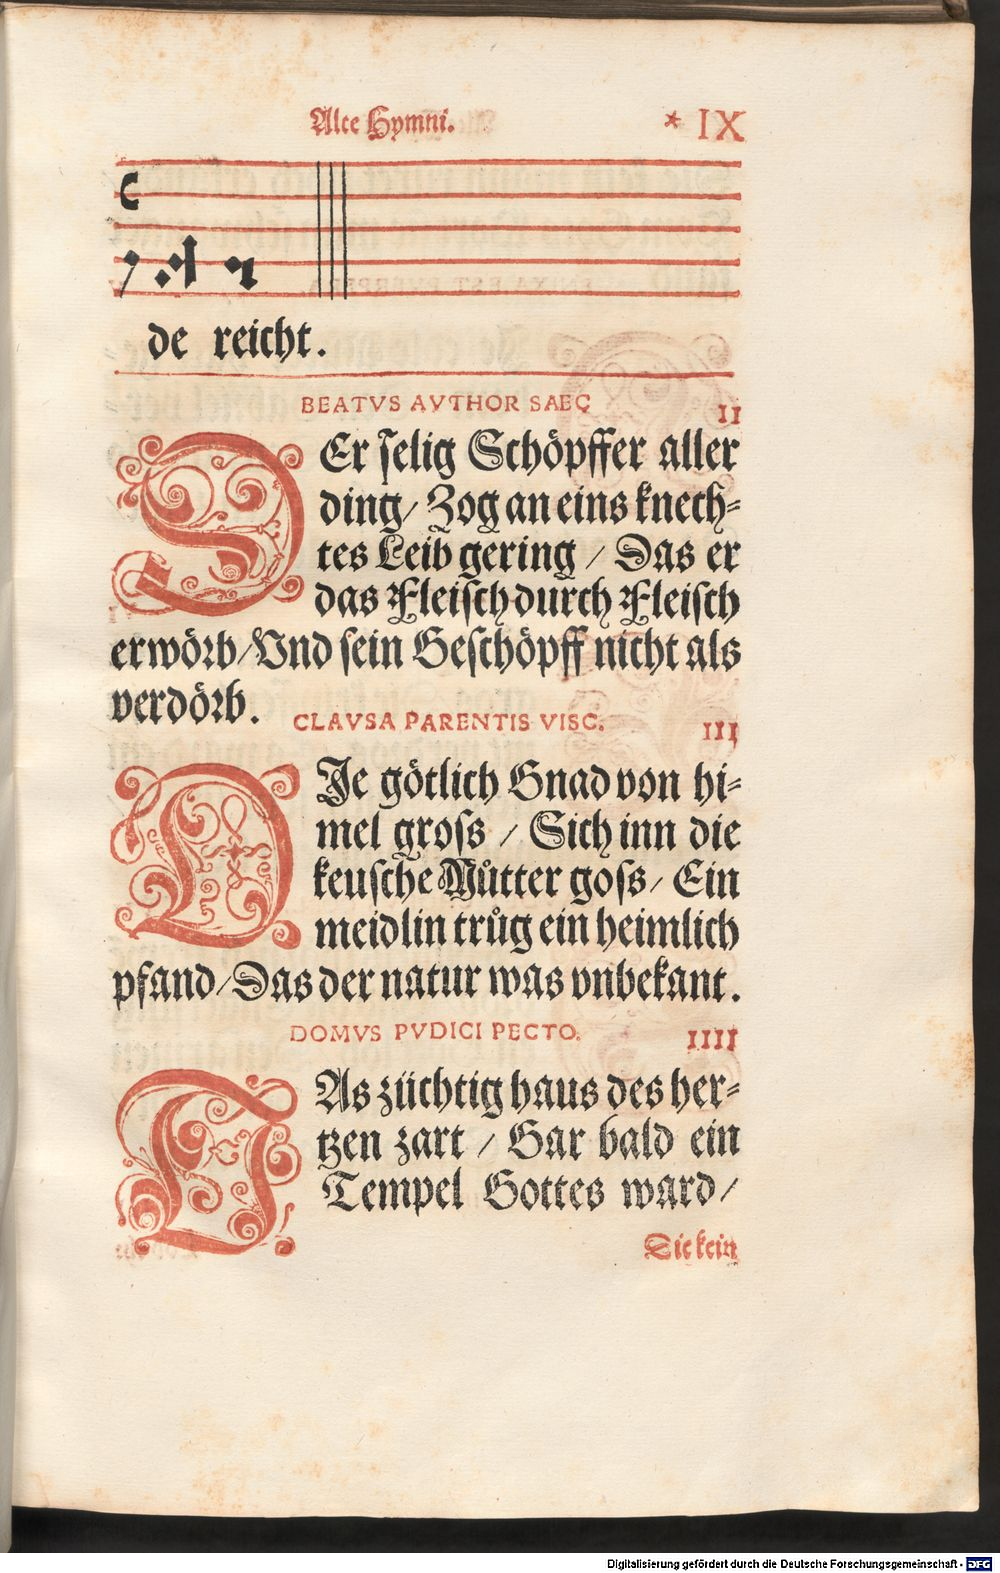 Alte Hymni. * IX
de reicht.
BEATVS AVTHOR SAEC II
DEr selig Schöpffer aller
ding/ Zog an eins knech-
tes Leib gering / Das er
das Fleisch durch Fleisch
erwörb/ Vnd sein Geschöpff nicht als
verdörb.
CLAVSA PARENTIS VISC. III
DIe götlich Gnad von hi-
mel gross / Sich inn die
keusche Můtter goss/ Ein
meidlin trůg ein heimlich
pfand/ Das der natur was vnbekant.
DOMVS PVDICI PECTO. IIII
DAs züchtig haus des her-
tzen zart / Gar bald ein
Tempel Gottes ward/
Die kein
Digitalisierung gefördert durch die Deutsche Forschungsgemeinschaft - DFG